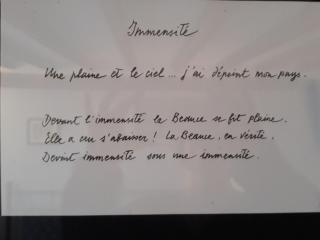 Immensité
Une plaine et le ciel... j'ai dépeint mon pays.
Devant l'immensité la Beauce se fit plaine.
Elle a cru s'abaisser! La Beauce, en vérité,
Devint immensité sous une immensité.